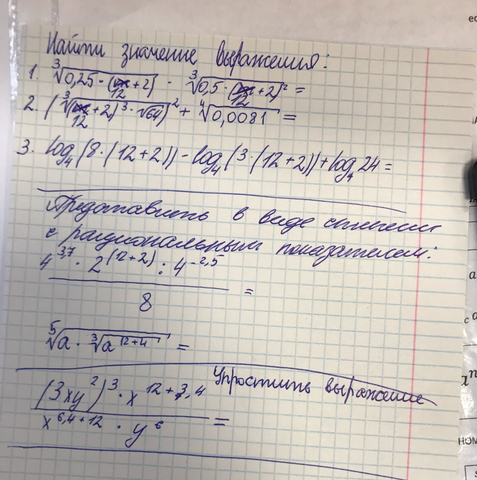 Найти значение выражения:
1. ∛(0,25·(12+2)) · ∛(0,5·(12+2)²) =
2. (∛(12+2)³·√64)² + ∜0,0081 =
3. log₄(8·(12+2)) - log₄(3·(12+2)) + log₄24 =
Представить в виде степени
с рациональным показателем:
4^3,7 · 2^(12+2) : 4^-2,5
8 =
⁵√(a·∛(a^12+4)) =
Упростить выражение
(3xy²)³·x^12+3,4
x^6,4+12 · y⁶ =